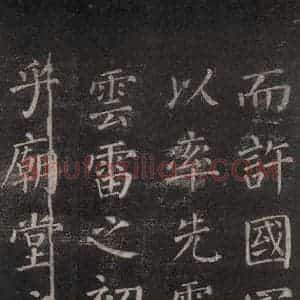 而許國
以率先
雲雷之初
乎廟堂